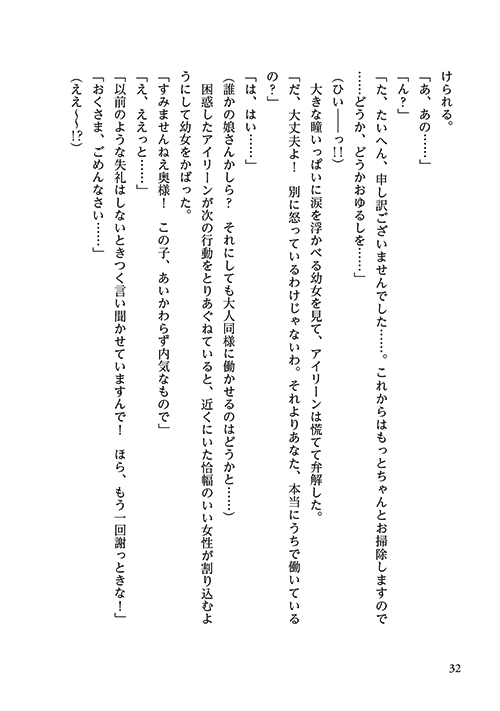 けられる。
「あ、あの……」
「ん？」
「た、たいへん、申し訳ございませんでした……。これからはもっとちゃんとお掃除しますので
……どうか、どうかおゆるしを……」
（ひい――っ!!）
　大きな瞳いっぱいに涙を浮かべる幼女を見て、アイリーンは慌てて弁解した。
「だ、大丈夫よ！　別に怒っているわけじゃないわ。それよりあなた、本当にうちで働いている
の？」
「は、はい……」
（誰かの娘さんかしら？　それにしても大人同様に働かせるのはどうかと……）
　困惑したアイリーンが次の行動をとりあぐねていると、近くにいた恰幅のいい女性が割り込むよ
うにして幼女をかばった。
「すみませんねえ奥様！　この子、あいかわらず内気なもので」
「え、ええっと……」
「以前のような失礼はしないときつく言い聞かせていますんで！　ほら、もう一回謝っときな！」
「おくさま、ごめんなさい……」
（ええ〜〜!?）
32